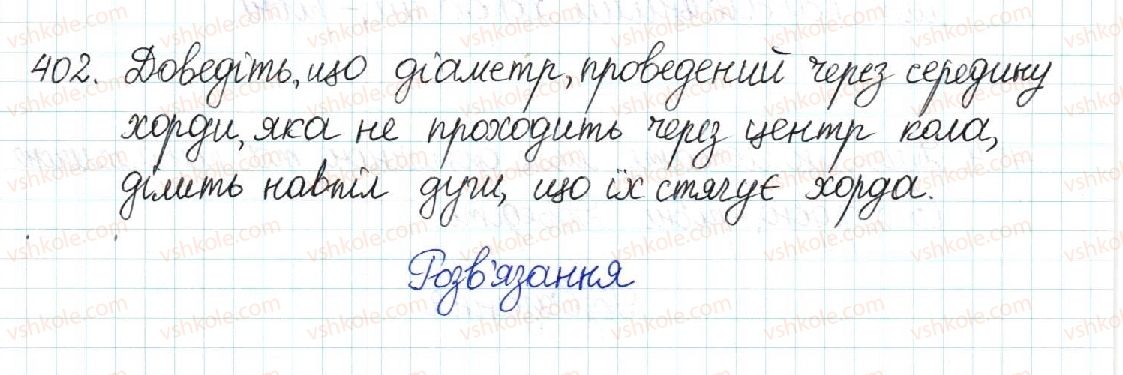 402. Доведіть, що діаметр, проведений через середину
хорди, яка не проходить через центр кола,
ділить навпіл дуги, що їх стягує хорда.
Розв'язання